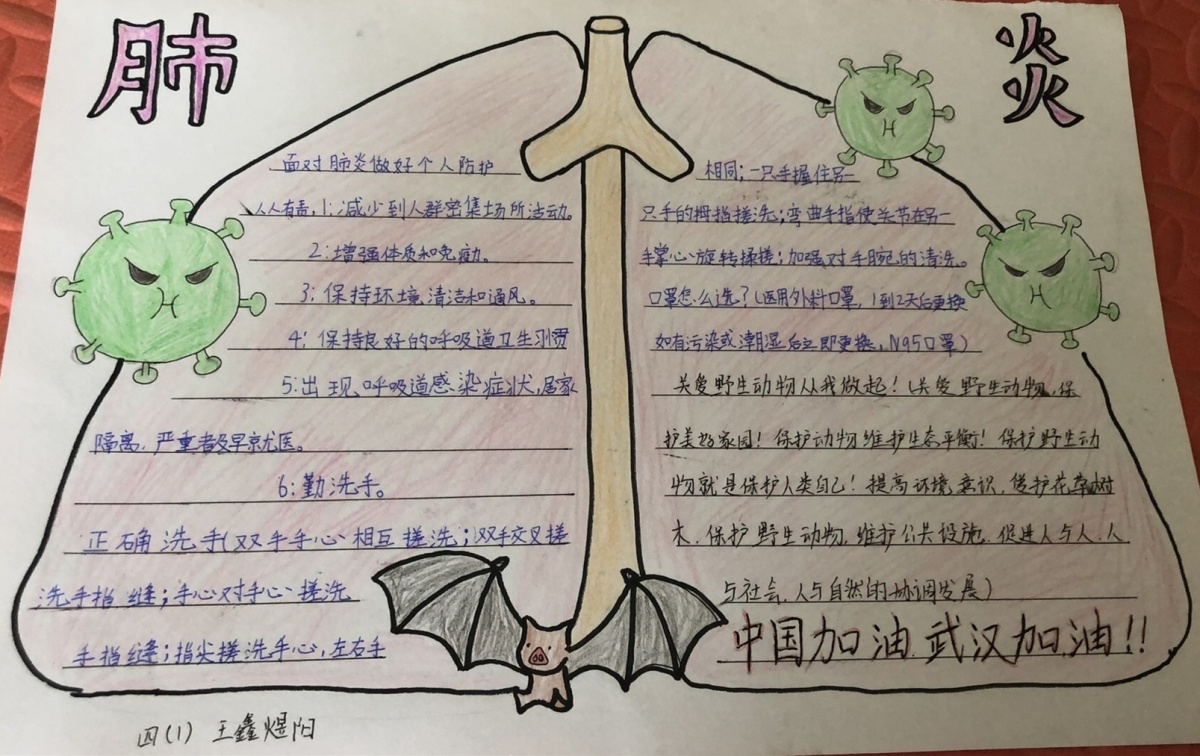 肺
炎
面对肺炎做好个人防护
人人有责，1：减少到人群密集场所活动。
2：增强体质和免疫力。
3：保持环境清洁和通风。
4：保持良好的呼吸道卫生习惯
5：出现呼吸道感染症状，居家
隔离.严重者及早就医。
6：勤洗手。
正确洗手(双手手心相互搓洗；双手交叉搓
洗手指缝；手心对手心搓洗
手指缝；指尖搓洗手心，左右手
相同；一只手握住另一
只手的拇指搓洗；弯曲手指使关节在另一
手掌心旋转揉搓；加强对手腕的清洗。
口罩怎么选？(医用外科口罩，1到2天后更换
如有污染或潮湿后立即更换，N95口罩)
关爱野生动物从我做起！(关爱野生动物，保
护美好家园！保护动物维护生态平衡！保护野生动
物就是保护人类自己！提高环境意识，爱护花草树
木.保护野生动物.维护公共设施.促进人与人.人
与社会.人与自然的协调发展)
中国加油.武汉加油!!
四(1) 王鑫煜阳